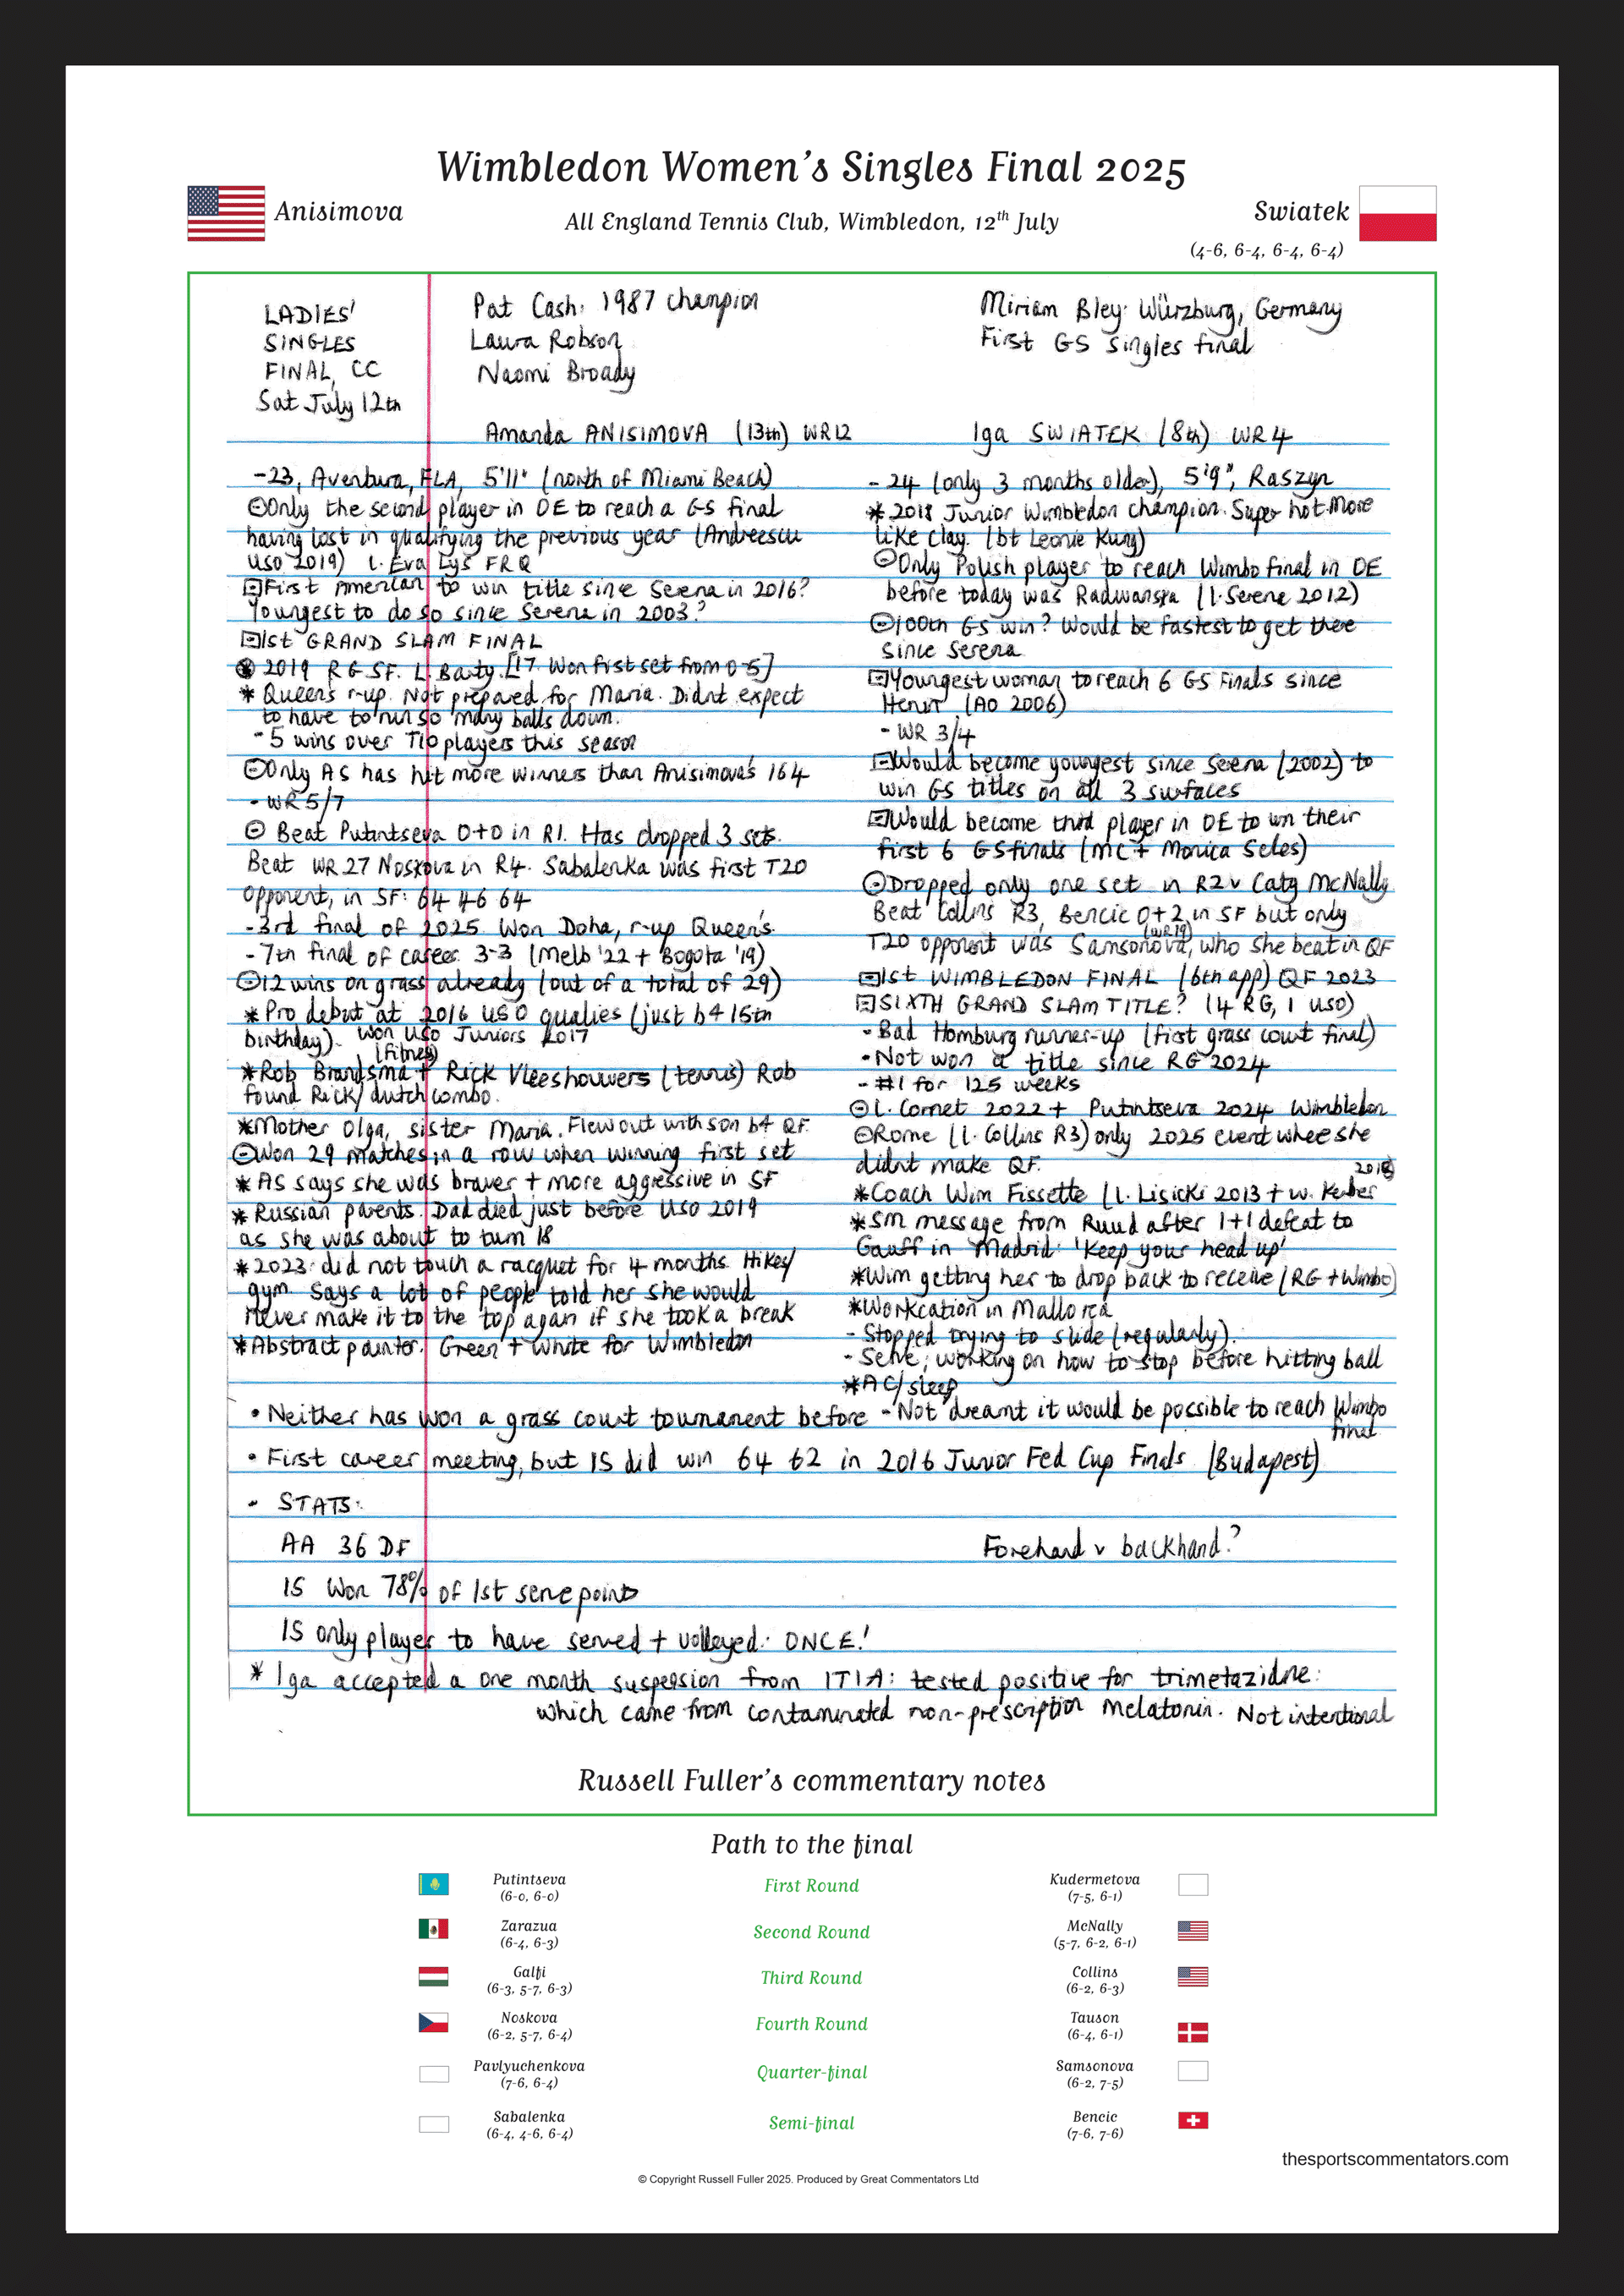 Wimbledon Women's Singles Final 2025
Anisimova
All England Tennis Club, Wimbledon, 12th July
Swiatek
(4-6, 6-4, 6-4, 6-4)
LADIES'
SINGLES
FINAL, CC
Sat July 12th
Pat Cash: 1987 champion
Laura Robson
Naomi Broady
Miriam Bley: Würzburg, Germany
First GS singles final
Amanda ANISIMOVA (13th) WR12
Iga SWIATEK (8th) WR4
-23, Aventura, FLA, 5'11" (north of Miami Beach)
Only the second player in OE to reach a GS final
having lost in qualifying the previous year (Andreescu
USO 2019) L. Eva Lys FRQ
First American to win title since Serena in 2016?
Youngest to do so since Serena in 2003?
1st GRAND SLAM FINAL
2019 RG SF. L. Barty. [17. Won first set from 0-5]
* Queen's r-up. Not prepared for Maria. Didnt expect
to have to run so many balls down.
- 5 wins over T10 players this season
Only AS has hit more winners than Anisimova's 164
- WR 5/7
Beat Putintseva 0+0 in R1. Has dropped 3 sets.
Beat WR 27 Noskova in R4. Sabalenka was first T20
opponent, in SF: 64 46 64
-3rd final of 2025. Won Doha, r-up Queen's.
- 7th final of career. 3-3 (Melb '22 + Bogota '19)
12 wins on grass already (out of a total of 29)
* Pro debut at 2016 USO qualies (just b4 15th
birthday). Won USO Juniors 2017
(fitness)
*Rob Brandsma + Rick Vleeshouwers (tennis) Rob
found Rick/dutch combo.
*Mother Olga, sister Maria. Flew out with son b4 QF.
Won 29 matches in a row when winning first set
* AS says she was braver + more aggressive in SF
* Russian parents. Dad died just before USO 2019
as she was about to turn 18
*2023: did not touch a racquet for 4 months. Hikes/
gym. Says a lot of people told her she would
never make it to the top again if she took a break
*Abstract painter. Green + white for Wimbledon
- 24 (only 3 months older), 5'9", Raszyn
* 2018 Junior Wimbledon champion. Super hot. More
like clay. (bt Leonie Kung)
Only Polish player to reach Wimbo final in OE
before today was Radwanska (l. Serena 2012)
100th GS win? Would be fastest to get there
since Serena
Youngest woman to reach 6 GS Finals since
Henin (AO 2006)
- WR 3/4
Would become youngest since Serena (2002) to
win GS titles on all 3 surfaces
Would become third player in OE to win their
first 6 GS finals (MC + Monica Seles)
Dropped only one set in R2 v Caty McNally
Beat Collins R3, Bencic 0+2 in SF but only
(WR19)
T20 opponent was Samsonova, who she beat in QF
1st WIMBLEDON FINAL (6th app) QF 2023
SIXTH GRAND SLAM TITLE? (4 RG, 1 USO)
- Bad Homburg runner-up (first grass court final)
- Not won a title since RG 2024
- #1 for 125 weeks
L. Cornet 2022 + Putintseva 2024 Wimbledon
Rome (l. Collins R3) only 2025 event where she
didnt make QF.
2018
*Coach Wim Fissette (L. Lisicki 2013 + w. Kerber
*SM message from Ruud after 1+1 defeat to
Gauff in Madrid: 'Keep your head up'
*Wim getting her to drop back to receive (RG + Wimbo)
*Workcation in Mallorca
- Stopped trying to slide (regularly).
- Serve; working on how to stop before hitting ball
*AC/sleep
- Not dreamt it would be possible to reach Wimbo
final
• Neither has won a grass court tournament before
• First career meeting, but IS did win 64 62 in 2016 Junior Fed Cup Finals (Budapest)
- STATS:
AA 36 DF
Forehand v backhand?
IS Won 78% of 1st serve points
IS only player to have served + volleyed: ONCE!
* Iga accepted a one month suspension from ITIA: tested positive for trimetazidine:
which came from contaminated non-prescription melatonin. Not intentional
Russell Fuller's commentary notes
Path to the final
Putintseva
(6-0, 6-0)
First Round
Kudermetova
(7-5, 6-1)
Zarazua
(6-4, 6-3)
Second Round
McNally
(5-7, 6-2, 6-1)
Galfi
(6-3, 5-7, 6-3)
Third Round
Collins
(6-2, 6-3)
Noskova
(6-2, 5-7, 6-4)
Fourth Round
Tauson
(6-4, 6-1)
Pavlyuchenkova
(7-6, 6-4)
Quarter-final
Samsonova
(6-2, 7-5)
Sabalenka
(6-4, 4-6, 6-4)
Semi-final
Bencic
(7-6, 7-6)
thesportscommentators.com
© Copyright Russell Fuller 2025. Produced by Great Commentators Ltd